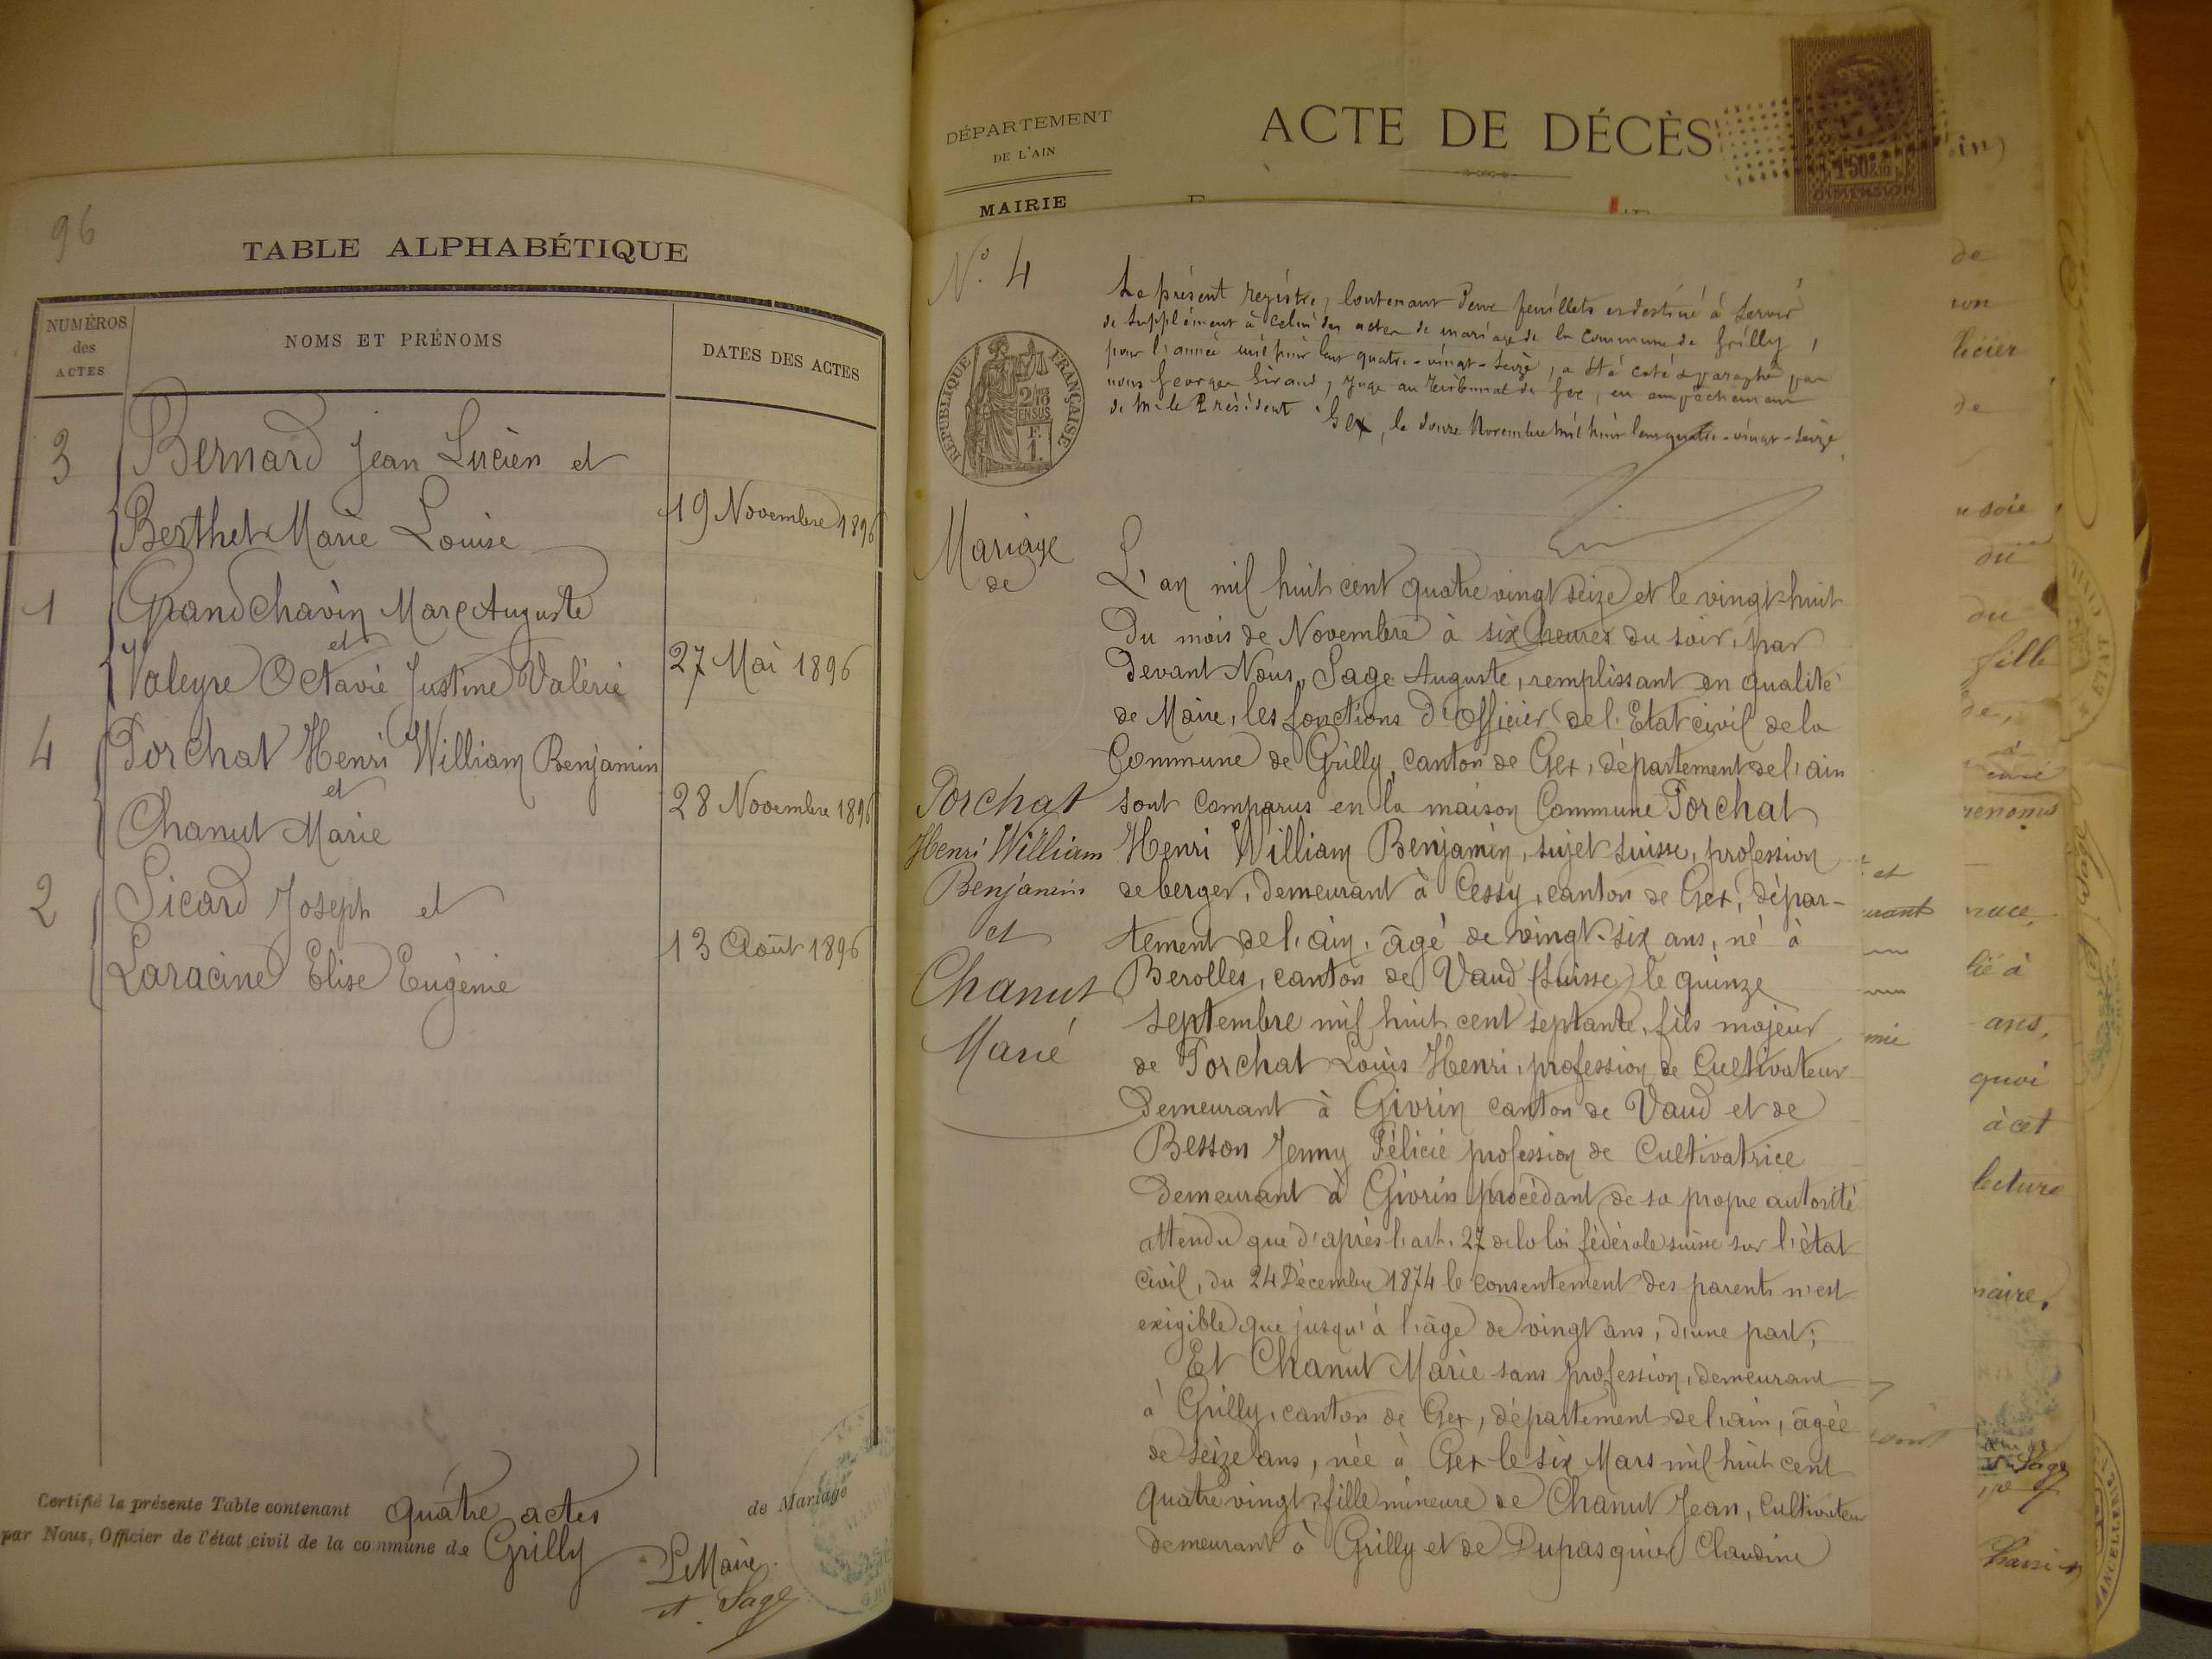 96
TABLE ALPHABÉTIQUE
NUMÉROS
des
ACTES
NOMS ET PRÉNOMS
DATES DES ACTES
3 Bernard Jean Lucien et
Berthet Marie Louise 19 Novembre 1896
1 Grandchavin Marc Auguste
et
Valeyre Octavie Justine Valérie 27 Mai 1896
4 Porchat Henri William Benjamin
et
Chanut Marie 28 Novembre 1896
2 Sicard Joseph et
Laracine Elise Eugénie 13 Août 1896
Certifié la présente Table contenant quatre actes de Mariage
par Nous, Officier de l'état civil de la commune de Grilly
Le Maire
A. Sage
DÉPARTEMENT
DE L'AIN
MAIRIE
ACTE DE DÉCÈS
1 50
DIMENSION
N° 4
Le présent registre, contenant deux feuillets est destiné à servir
de supplément à celui des actes de mariage de la commune de Grilly,
pour l'année mil huit cent quatre-vingt-seize, a été coté & paraphé par
nous Georges Giraud, juge au tribunal de Gex, en empêchement
de Mr le Président Gex, le douze Novembre mil huit cent quatre-vingt-seize
RÉPUBLIQUE FRANÇAISE
2/10
EN SUS
F.
1.
Mariage
de
Porchat
Henri William
Benjamin
et
Chanut
Marie
L'an mil huit cent quatre vingt seize et le vingt-huit
du mois de Novembre à six heures du soir, par
devant Nous, Sage Auguste, remplissant en qualité
de Maire, les fonctions d'Officier de l'Etat civil de la
Commune de Grilly, canton de Gex, département de l'ain
sont comparus en la maison Commune Porchat
Henri William Benjamin, sujet suisse, profession
de berger, demeurant à Cessy, canton de Gex, dépar-
tement de l'ain, âgé de vingt-six ans, né à
Berolles, canton de Vaud (Suisse) le quinze
septembre mil huit cent septante, fils majeur
de Porchat Louis Henri, profession de Cultivateur
demeurant à Givrin canton de Vaud et de
Besson Jenny Félicie profession de Cultivatrice
demeurant à Givrin procédant de sa propre autorité
attendu que d'après l'art. 27 de la loi fédérale suisse sur l'état
civil, du 24 Décembre 1874 le consentement des parents n'est
exigible que jusqu'à l'âge de vingt ans, d'une part;
Et Chanut Marie sans profession, demeurant
à Grilly, canton de Gex, département de l'ain, âgée
de seize ans, née à Gex le six Mars mil huit cent
quatre vingt, fille mineure de Chanut Jean, Cultivateur
demeurant à Grilly et de Dupasquier Claudine
de
son
de
soie
du
du
fille
de,
et
lié à
ans,
quoi
à cet
lecture
Sage